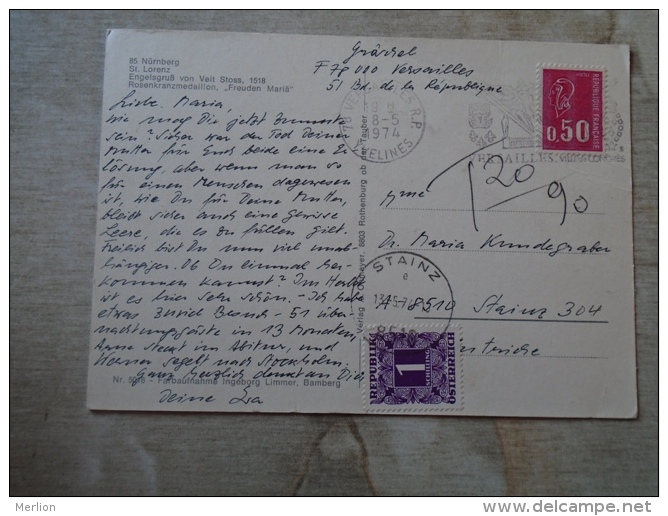 85 Nürnberg
St. Lorenz
Engelsgruß von Veit Stoss, 1518
Rosenkranzmedaillon, „Freuden Mariä"
Liebe Maria,
wie mag Dir jetzt zumute
sein? Sicher war der Tod Deiner
Mutter für Euch beide eine Er-
lösung, aber wenn man so
für einen Menschen dagewesen
ist, wie Du für Deine Mutter,
bleibt sicher auch eine gewisse
Leere, die es zu füllen gilt.
Freilich bist Du nun viel unab-
hängiger. Ob Du einmal her-
kommen kannst? Im Herbst
ist es hier sehr schön. - Ich habe
etwas zuviel Besuch - 51 über-
nachtungsgäste in 13 Monaten,
Anne steckt im Abitur, und
Werner segelt nach Stockholm.
Ganz herzlich denkt an Dich
Deine Eva
Nr. 5018 - Farbaufnahme Ingeborg Limmer, Bamberg
8803 Rothenburg ob der Tauber
Gräschel
F 78 000 Versailles
51 Bd. de la République
78 VERSAILLES R.P.
8-5
1974
YVELINES
VERSAILLES
REPUBLIQUE FRANÇAISE
0,50
T 20/90
Mme
Dr. Maria Kundegraber
A-8510 Stainz 304
STAINZ
8510
REPUBLIK
ÖSTERREICH
1
SCHILLING
Merlion
www.delcampe.net